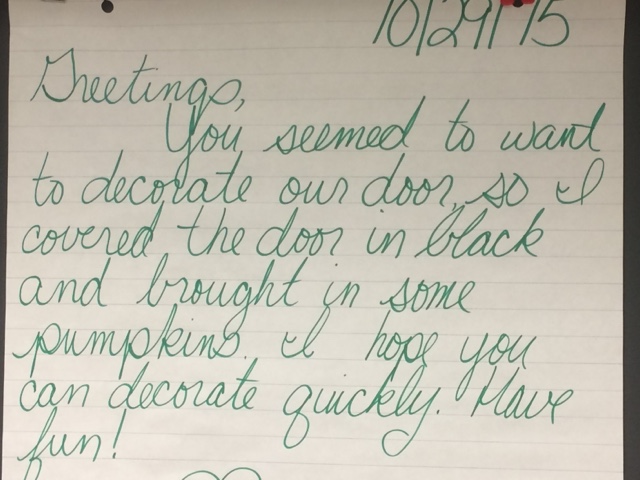 10/29/15
Greetings,
You seemed to want
to decorate our door, so I
covered the door in black
and brought in some
pumpkins. I hope you
can decorate quickly. Have
fun!